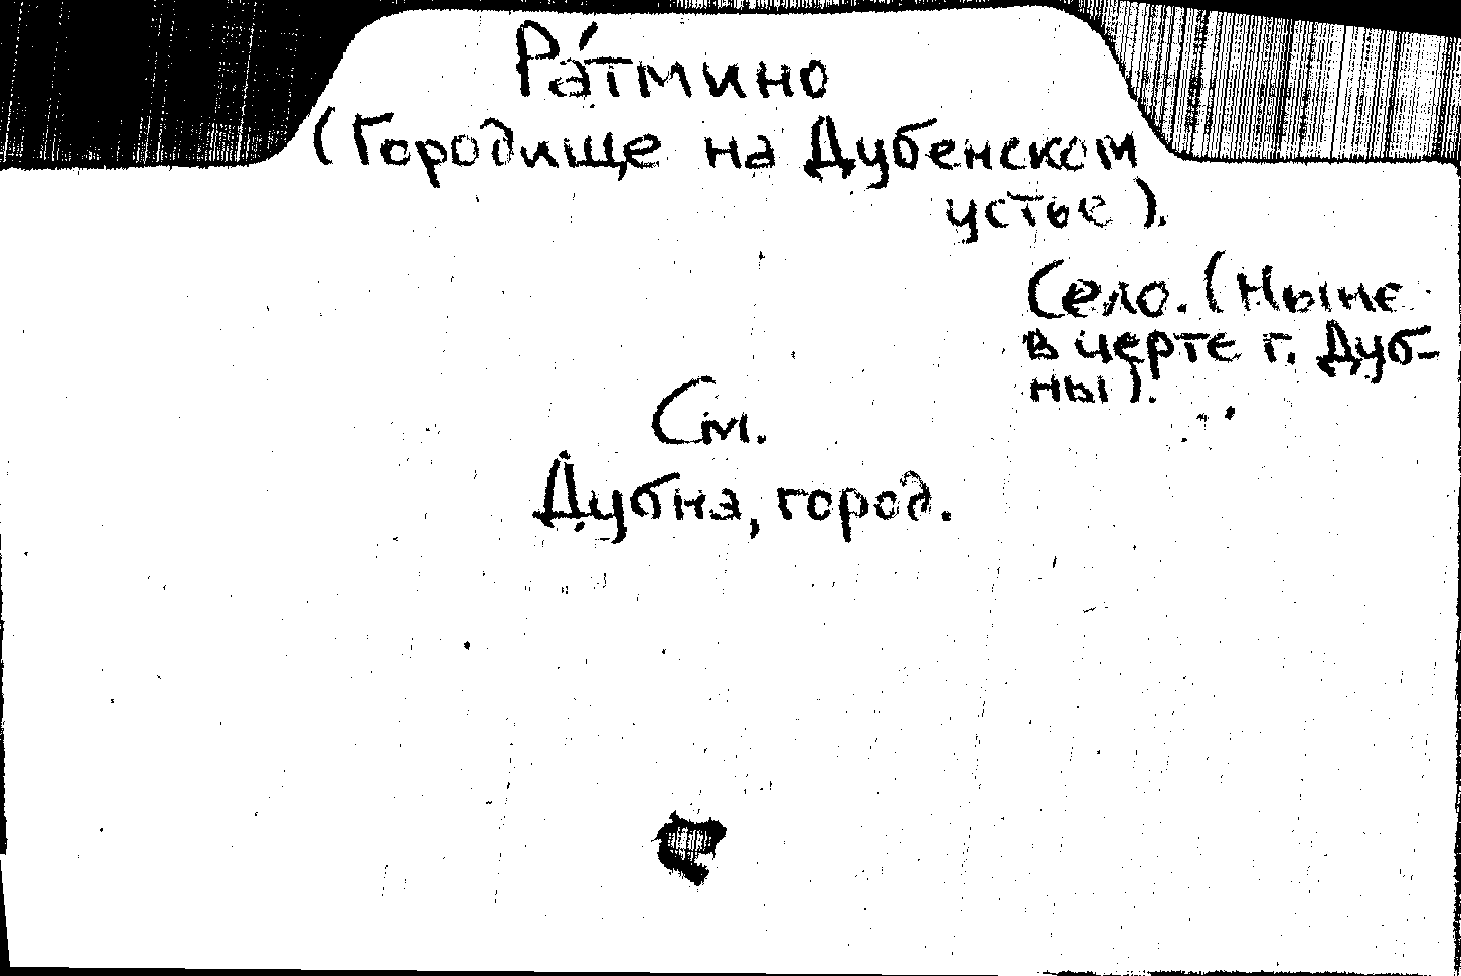 Ра́тмино
(Городище на Дубенском
устье).
Село. (Ныне
в черте г. Дуб-
ны).
См.
Дубна, город.